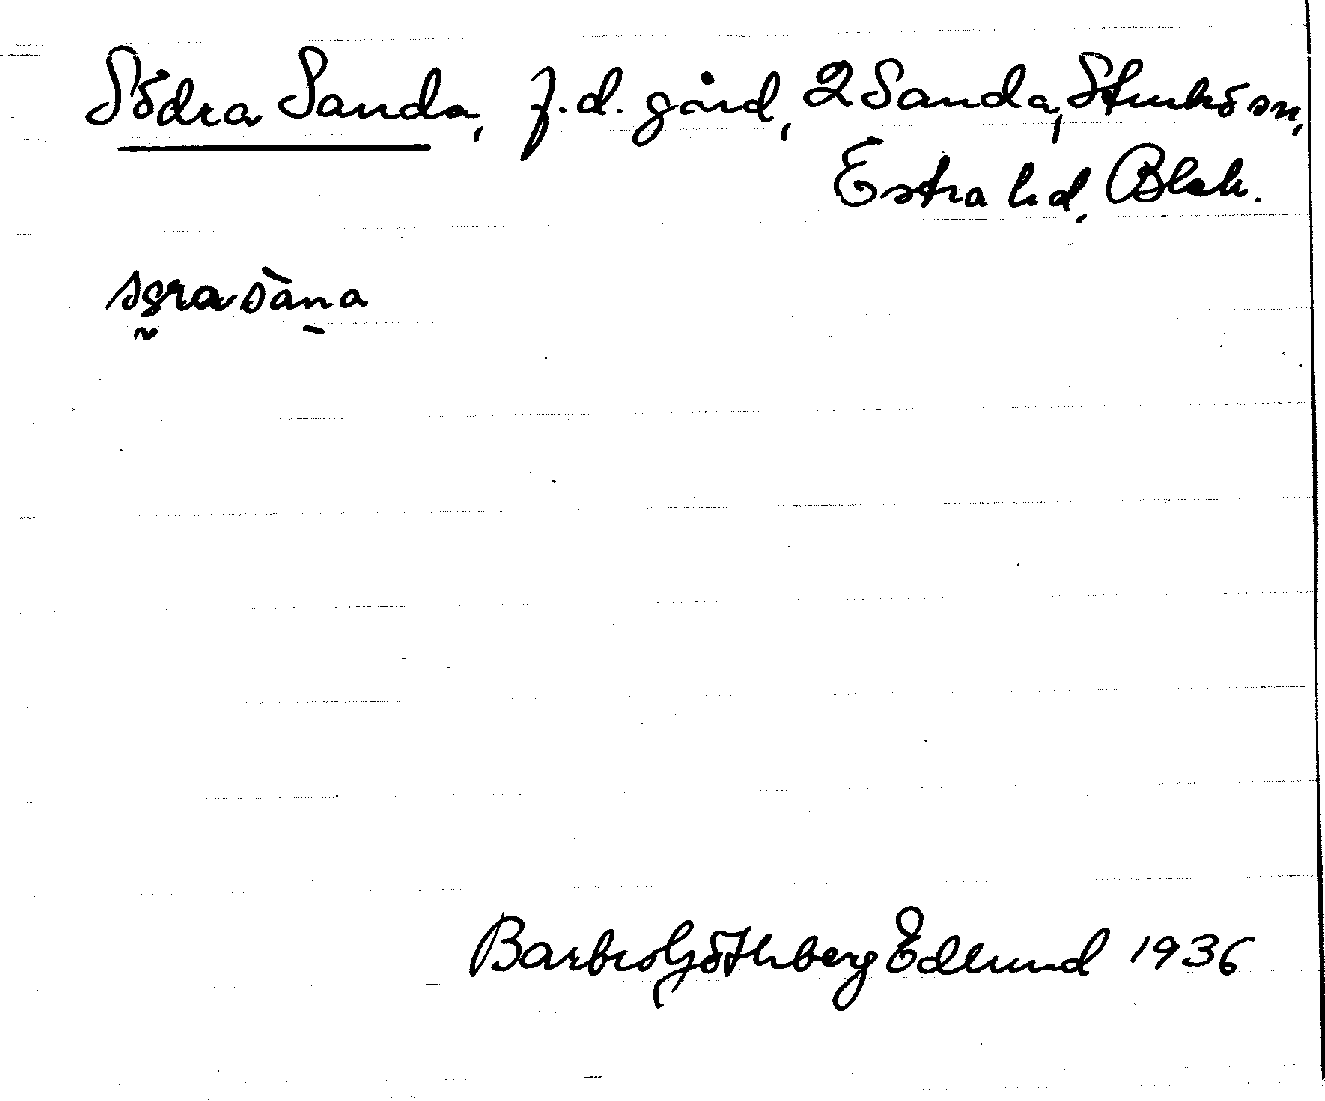 Södra Sanda, f.d. gård, 2 Sanda, Sturkö sn,
Östra hd, Blek.
Barbro Göthberg Edlund 1936